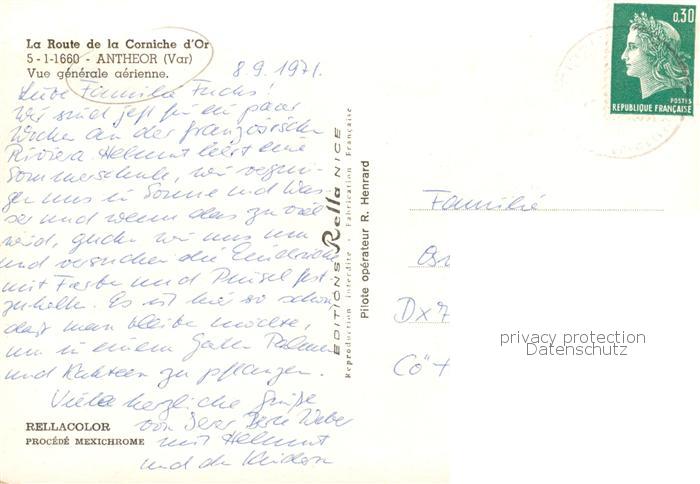 La Route de la Corniche d'Or
5-1-1660 - ANTHEOR (Var)
Vue générale aérienne.
8.9.1971.
Liebe Familie Fuchs!
Wir sind jetzt für ein paar
Wochen an der französischen
Riviera. Helmut leert eine
Sommerschule, wir vergnü-
gen uns in Sonne und Was-
ser und wenn das zu viel
wird, gucken wir uns um
und versuchen die Eindrücke
mit Farbe und Pinsel fest-
zuhalten. Es ist hier so schön,
daß man bleiben möchte,
um in einem Garten Palmen
und Kakteen zu pflanzen.
Viele herzliche Grüße
von Weber
mit Helmut
und den Kindern
RELLACOLOR
PROCÉDÉ MEXICHROME
EDITIONS Rella NICE
Reproduction interdite - Fabrication Française
Pilote opérateur R. Henrard
0,30
POSTES
REPUBLIQUE FRANÇAISE
Familie
Dx7
Cö
privacy protection
Datenschutz